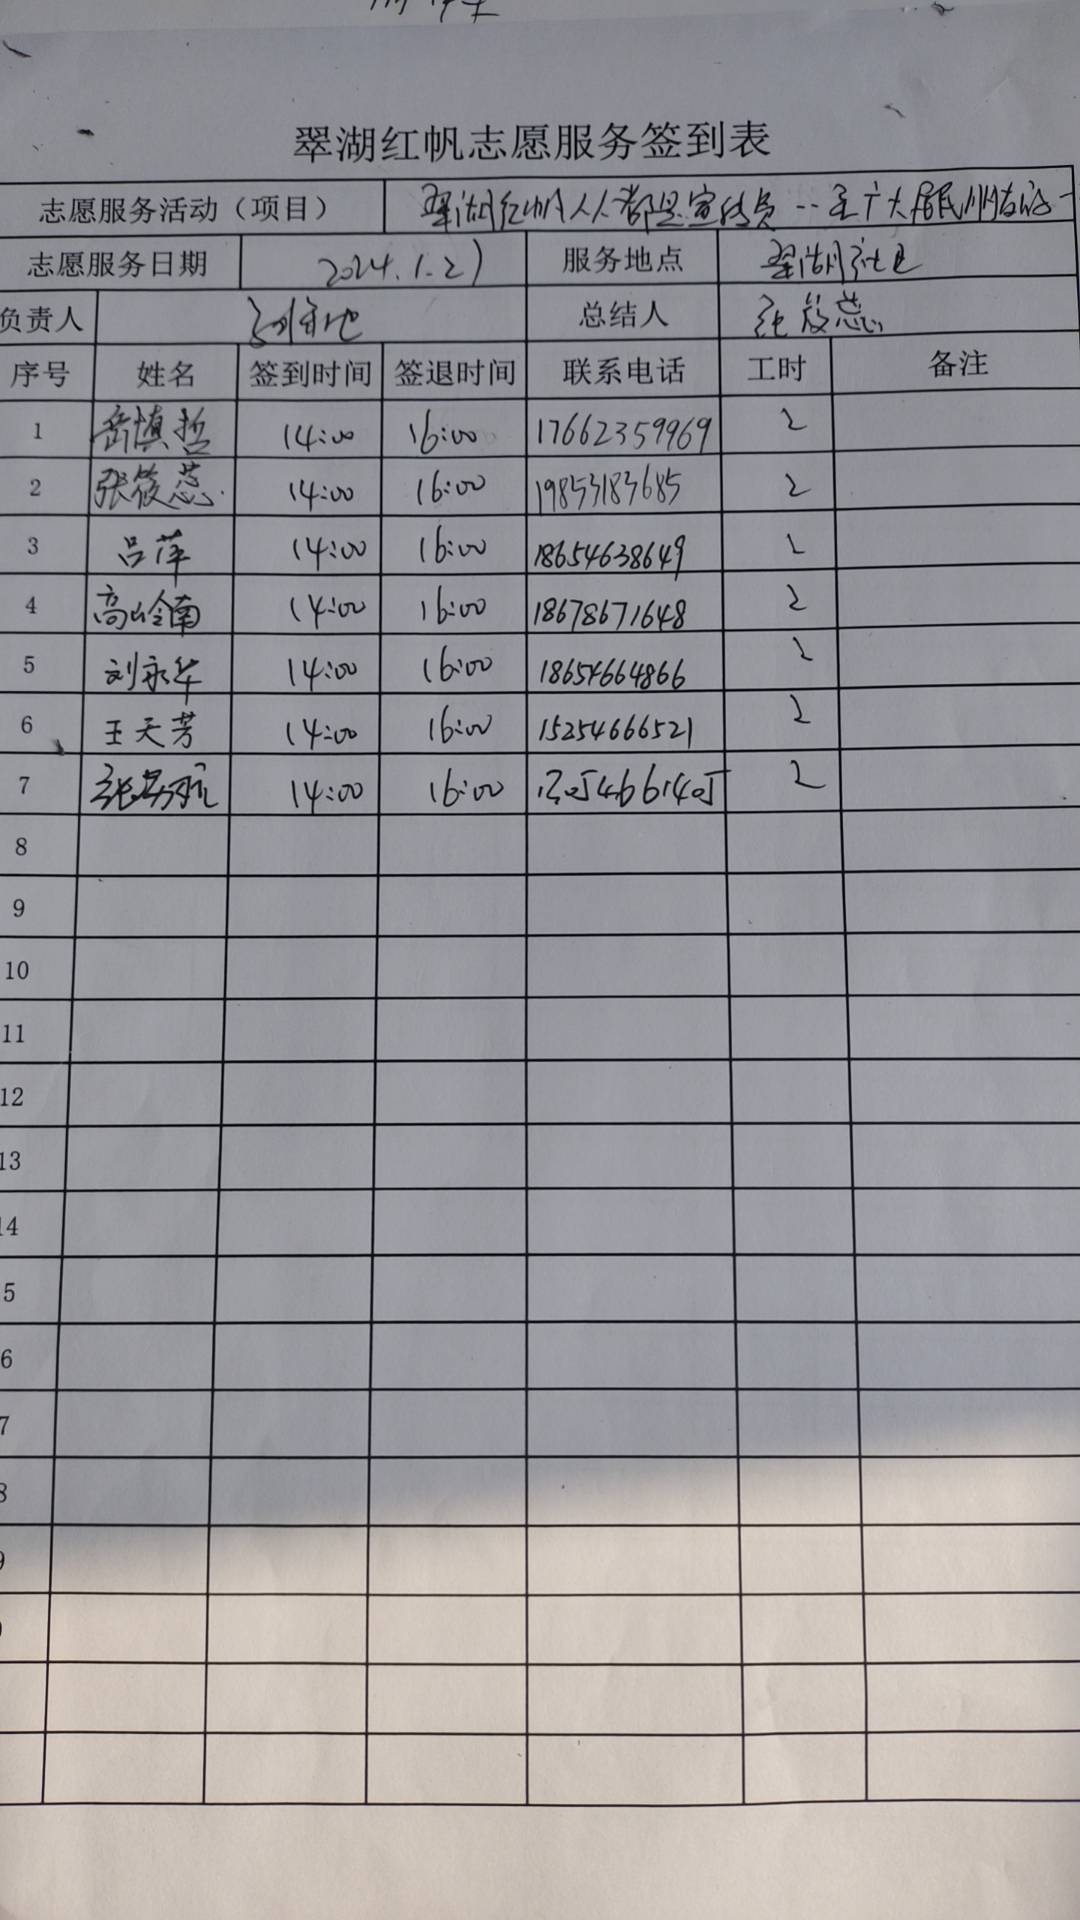 翠湖红帆志愿服务签到表
志愿服务活动（项目） 翠湖红帆人人都是宣传员
志愿服务日期 2024.1.21 服务地点 翠湖社区
负责人 总结人 张筱蕊
序号 姓名 签到时间 签退时间 联系电话 工时 备注
1 岳慎哲 14:00 16:00 17662359969 2
2 张筱蕊 14:00 16:00 19853183685 2
3 吕萍 14:00 16:00 18654638649 2
4 高岭南 14:00 16:00 18678671648 2
5 刘永华 14:00 16:00 18654664866 2
6 王天芳 14:00 16:00 15254666521 2
7 14:00 16:00 2
8
9
10
11
12
13
14
5
6
7
8
9